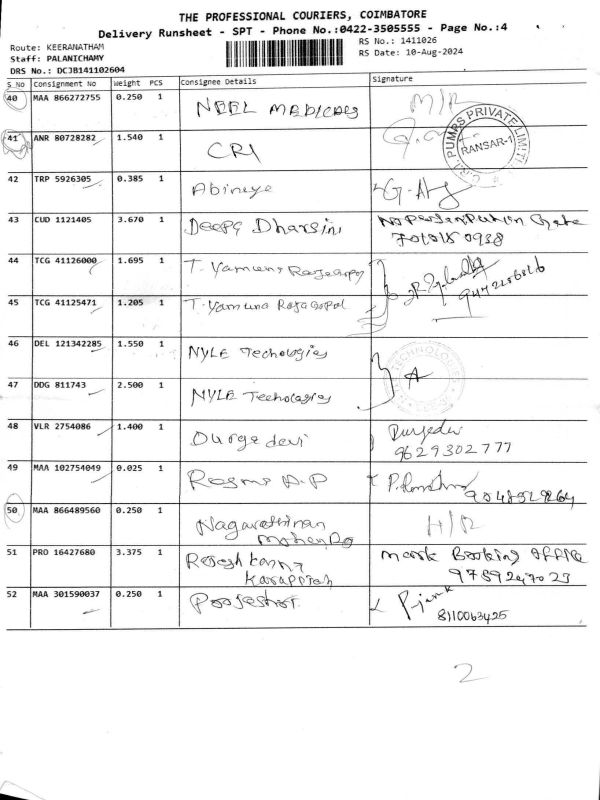 THE PROFESSIONAL COURIERS, COIMBATORE
Delivery Runsheet - SPT - Phone No.:0422-3505555 - Page No.:4
Route: KEERANATHAM
RS No.: 1411026
Staff: PALANICHAMY
RS Date: 10-Aug-2024
DRS No.: DCJB141102604
S_No Consignment No Weight PCS Consignee Details Signature
40 MAA 866272755 0.250 1 NEEL MEDICALS M/R
41 ANR 80728282 1.540 1 CRI
PUMPS PRIVATE LIMIT
RANSAR-1
42 TRP 5926305 0.385 1 Abineye
43 CUD 1121405 3.670 1 Deepa Dharsini
44 TCG 41126000 1.695 1 T. Yamuna Rajagopal
45 TCG 41125471 1.205 1 T. Yamuna Rajagopal
46 DEL 121342285 1.550 1 NYLE Techologies
TECHNOLOGIES
47 DDG 811743 2.500 1 NYLE Techologies A
48 VLR 2754086 1.400 1 Durgadevi Durgadevi
9629302777
49 MAA 102754049 0.025 1 A.P
50 MAA 866489560 0.250 1 Nagarathinan
51 PRO 16427680 3.375 1 Rajesh Kanna Booking office
52 MAA 301590037 0.250 1
8110063425
2